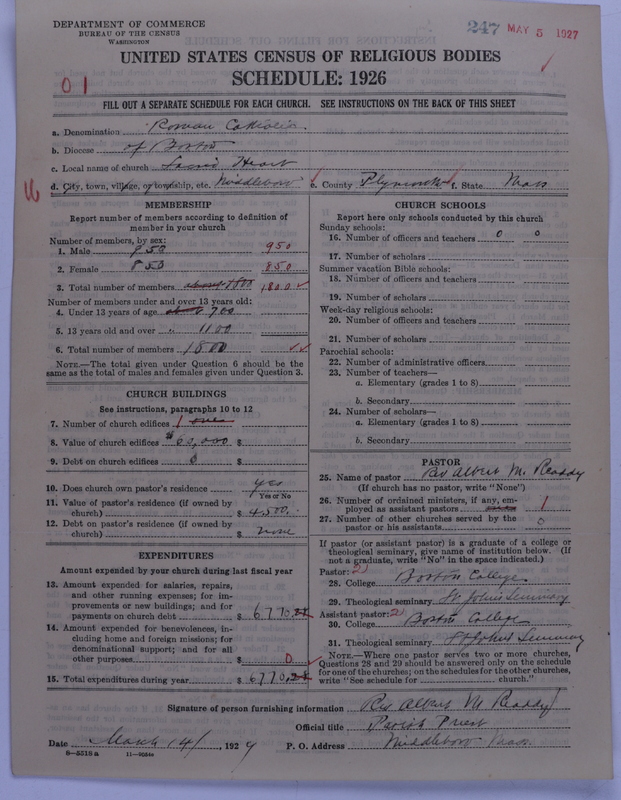 DEPARTMENT OF COMMERCE
BUREAU OF THE CENSUS
WASHINGTON
247 MAY 5 1927
UNITED STATES CENSUS OF RELIGIOUS BODIES
SCHEDULE: 1926
0 1
FILL OUT A SEPARATE SCHEDULE FOR EACH CHURCH. SEE INSTRUCTIONS ON THE BACK OF THIS SHEET
a. Denomination Roman Catholic
b. Diocese of Boston
c. Local name of church Sacred Heart
d. City, town, village, or township, etc. Middleboro e. County Plymouth f. State Mass
MEMBERSHIP
Report number of members according to definition of
member in your church
Number of members, by sex:
1. Male 950 950
2. Female 850 850
3. Total number of members about 1800 1800
Number of members under and over 13 years old:
4. Under 13 years of age about 700
5. 13 years old and over 1100
6. Total number of members 1800
NOTE.—The total given under Question 6 should be
same as the total of males and females given under Question 3.
CHURCH BUILDINGS
See instructions, paragraphs 10 to 12
7. Number of church edifices 1
8. Value of church edifices $60,000 $
9. Debt on church edifices 0 $
10. Does church own pastor's residence yes
Yes or No
11. Value of pastor's residence (if owned by
church) $ 4,500.
12. Debt on pastor's residence (if owned by
church) $ none
EXPENDITURES
Amount expended by your church during last fiscal year
13. Amount expended for salaries, repairs,
and other running expenses; for im-
provements or new buildings; and for
payments on church debt $ 6770.
14. Amount expended for benevolences, in-
cluding home and foreign missions; for
denominational support; and for all
other purposes $ 0
15. Total expenditures during year $ 6770.
CHURCH SCHOOLS
Report here only schools conducted by this church
Sunday schools:
16. Number of officers and teachers 0 0
17. Number of scholars
Summer vacation Bible schools:
18. Number of officers and teachers
19. Number of scholars
Week-day religious schools:
20. Number of officers and teachers
21. Number of scholars
Parochial schools:
22. Number of administrative officers
23. Number of teachers—
a. Elementary (grades 1 to 8)
b. Secondary
24. Number of scholars—
a. Elementary (grades 1 to 8)
b. Secondary
PASTOR
25. Name of pastor Rev Albert M. Readdy
(If church has no pastor, write "None")
26. Number of ordained ministers, if any, em-
ployed as assistant pastors 1
27. Number of other churches served by the
pastor or his assistants 0
If pastor (or assistant pastor) is a graduate of a college or
theological seminary, give name of institution below. (If
not a graduate, write "No" in the space indicated.)
Pastor:
28. College Boston College
29. Theological seminary St Johns Seminary
Assistant pastor:
30. College Boston College
31. Theological seminary St Johns Seminary
NOTE.—Where one pastor serves two or more churches,
Questions 28 and 29 should be answered only on the schedule
for one of the churches; on the schedules for the other churches,
write "See schedule for church."
Signature of person furnishing information Rev Albert M Readdy
Official title Parish Priest
Date March 14, 192 P. O. Address Middleboro Mass.
8—5518 a